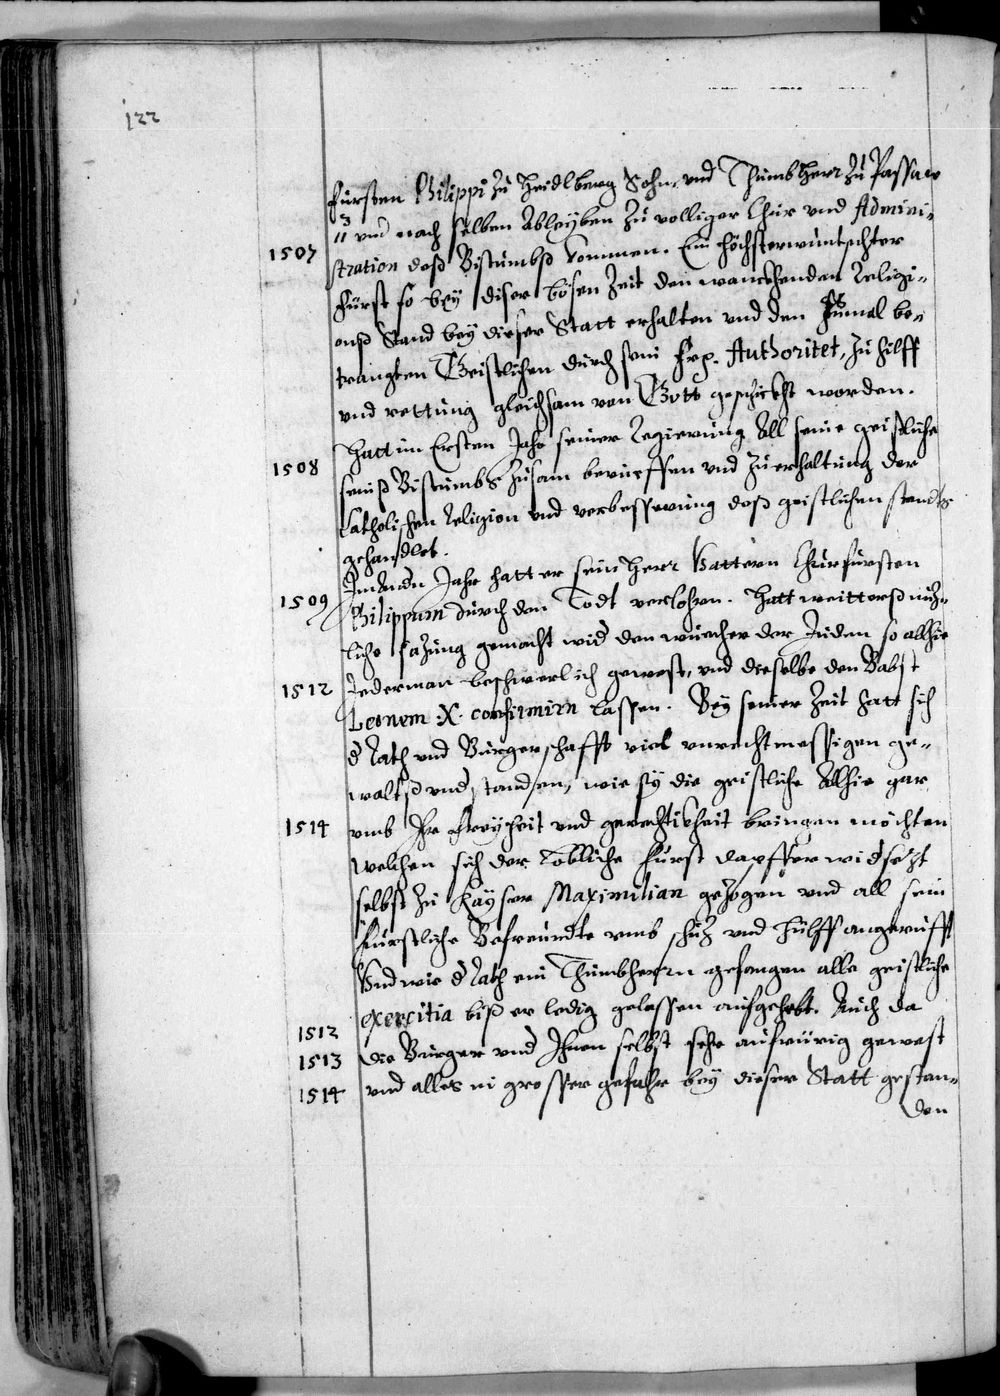 122
fürsten Philippi zu Heidlberg Sohn, und Thumbherr zu Passaw
und nach selben Ableyben zu volliger Chur und Admini-
1507 stration deß Bistumbß kommen. Ein höchsterwüntschter
Fürst so bey diser bösen Zeit den wanckhenden Religi-
onß Stand bey dieser Statt erhalten und den zumal be-
trangten Geistlichen durch sein Frp. Authoritet, zu hilff
und rettung gleichsam von Gott geschickht worden.
Hatt im Ersten Jahr seiner Regierung All seine geistliche
1508 seinß Bistumbs zusam berueffen und zu erhaltung der
Catholischen Religion und verbesserung deß geistlichen stands
gehandlet.
Im Andn Jahr hatt er sein Herr Vattern Churfürsten
1509 Philippum durch den Todt verlohren. Hatt weitterß nuz-
liche sazung gemacht wid den wuecher der Juden so allhie
1512 Jederman beschwerlich gewest, und dieselbe den Babst
Leonem X. confirmirn lassen. Bey seiner Zeit hatt sich
d Rath und Burgerschafft viel unrechtmessigen ge-
waltß undstanden, wie sy die geistliche Allhie gar
1514 umb Ihr freyheit und gerechtikheit bringen möchten
welchen sich der Löbliche Fürst dapffer widsezt
selbst zu Kayser Maximilian gezogen und all sein
fürstliche Befreundte umb schuz und hülff angerufft
Und wie d Rath ein Thumbherrn gefangen alle geistliche
1512 exercitia biß er ledig gelassen aufgehebt. Auch da
1513 die Burger und Ihnen selbst sehr aufrürig gewest
1514 und alles in grosser gefahr bey dieser Statt gestan-
den